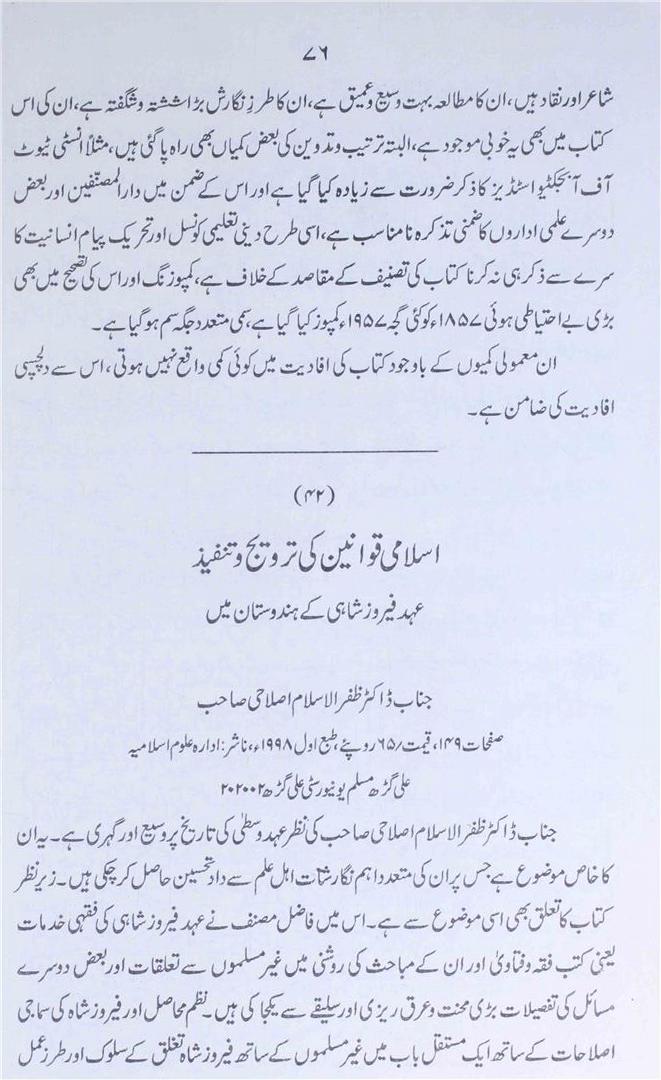 ۷۶
شاعر اور نقاد ہیں، ان کا مطالعہ بہت وسیع و عمیق ہے، ان کا طرز نگارش بڑا شستہ و شگفتہ ہے، ان کی اس
کتاب میں بھی یہ خوبی موجود ہے، البتہ ترتیب و تدوین کی بعض کمیاں بھی راہ پا گئی ہیں، مثلاً انسٹی ٹیوٹ
آف آبجکٹیو اسٹڈیز کا ذکر ضرورت سے زیادہ کیا گیا ہے اور اس کے ضمن میں دار المصنفین اور بعض
دوسرے علمی اداروں کا ضمنی تذکرہ نامناسب ہے، اسی طرح دینی تعلیمی کونسل اور تحریک پیام انسانیت کا
سرے سے ذکر ہی نہ کرنا کتاب کی تصنیف کے مقاصد کے خلاف ہے، کمپوزنگ اور اس کی تصحیح میں بھی
بڑی بے احتیاطی ہوئی ۱۸۵۷ء کو کئی جگہ ۱۹۵۷ء کمپوز کیا گیا ہے، سمی متعدد جگہ سم ہو گیا ہے۔
ان معمولی کمیوں کے باوجود کتاب کی افادیت میں کوئی کمی واقع نہیں ہوتی، اس سے دلچسپی
افادیت کی ضامن ہے۔
(۴۲)
اسلامی قوانین کی ترویج و تنفیذ
عہد فیروز شاہی کے ہندوستان میں
جناب ڈاکٹر ظفر الاسلام اصلاحی صاحب
صفحات ۱۴۹، قیمت ؍۶۵ روپئے، طبع اول ۱۹۹۸ء، ناشر: ادارہ علوم اسلامیہ
علی گڑھ مسلم یونیورسٹی علی گڑھ ۲۰۲۰۰۲
جناب ڈاکٹر ظفر الاسلام اصلاحی صاحب کی نظر عہد وسطیٰ کی تاریخ پر وسیع اور گہری ہے۔ یہ ان
کا خاص موضوع ہے جس پر ان کی متعدد اہم نگارشات اہل علم سے داد تحسین حاصل کر چکی ہیں۔ زیر نظر
کتاب کا تعلق بھی اسی موضوع سے ہے۔ اس میں فاضل مصنف نے عہد فیروز شاہی کی فقہی خدمات
یعنی کتب فقہ و فتاویٰ اور ان کے مباحث کی روشنی میں غیر مسلموں سے تعلقات اور بعض دوسرے
مسائل کی تفصیلات بڑی محنت و عرق ریزی اور سلیقے سے یکجا کی ہیں۔ نظم محاصل اور فیروز شاہ کی سماجی
اصلاحات کے ساتھ ایک مستقل باب میں غیر مسلموں کے ساتھ فیروز شاہ تغلق کے سلوک اور طرز عمل